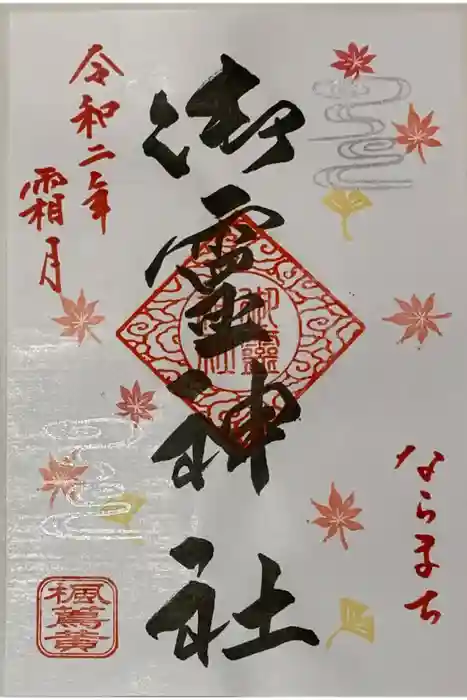 ならまち
御霊神社
令和二年
霜月
楓蔦黄